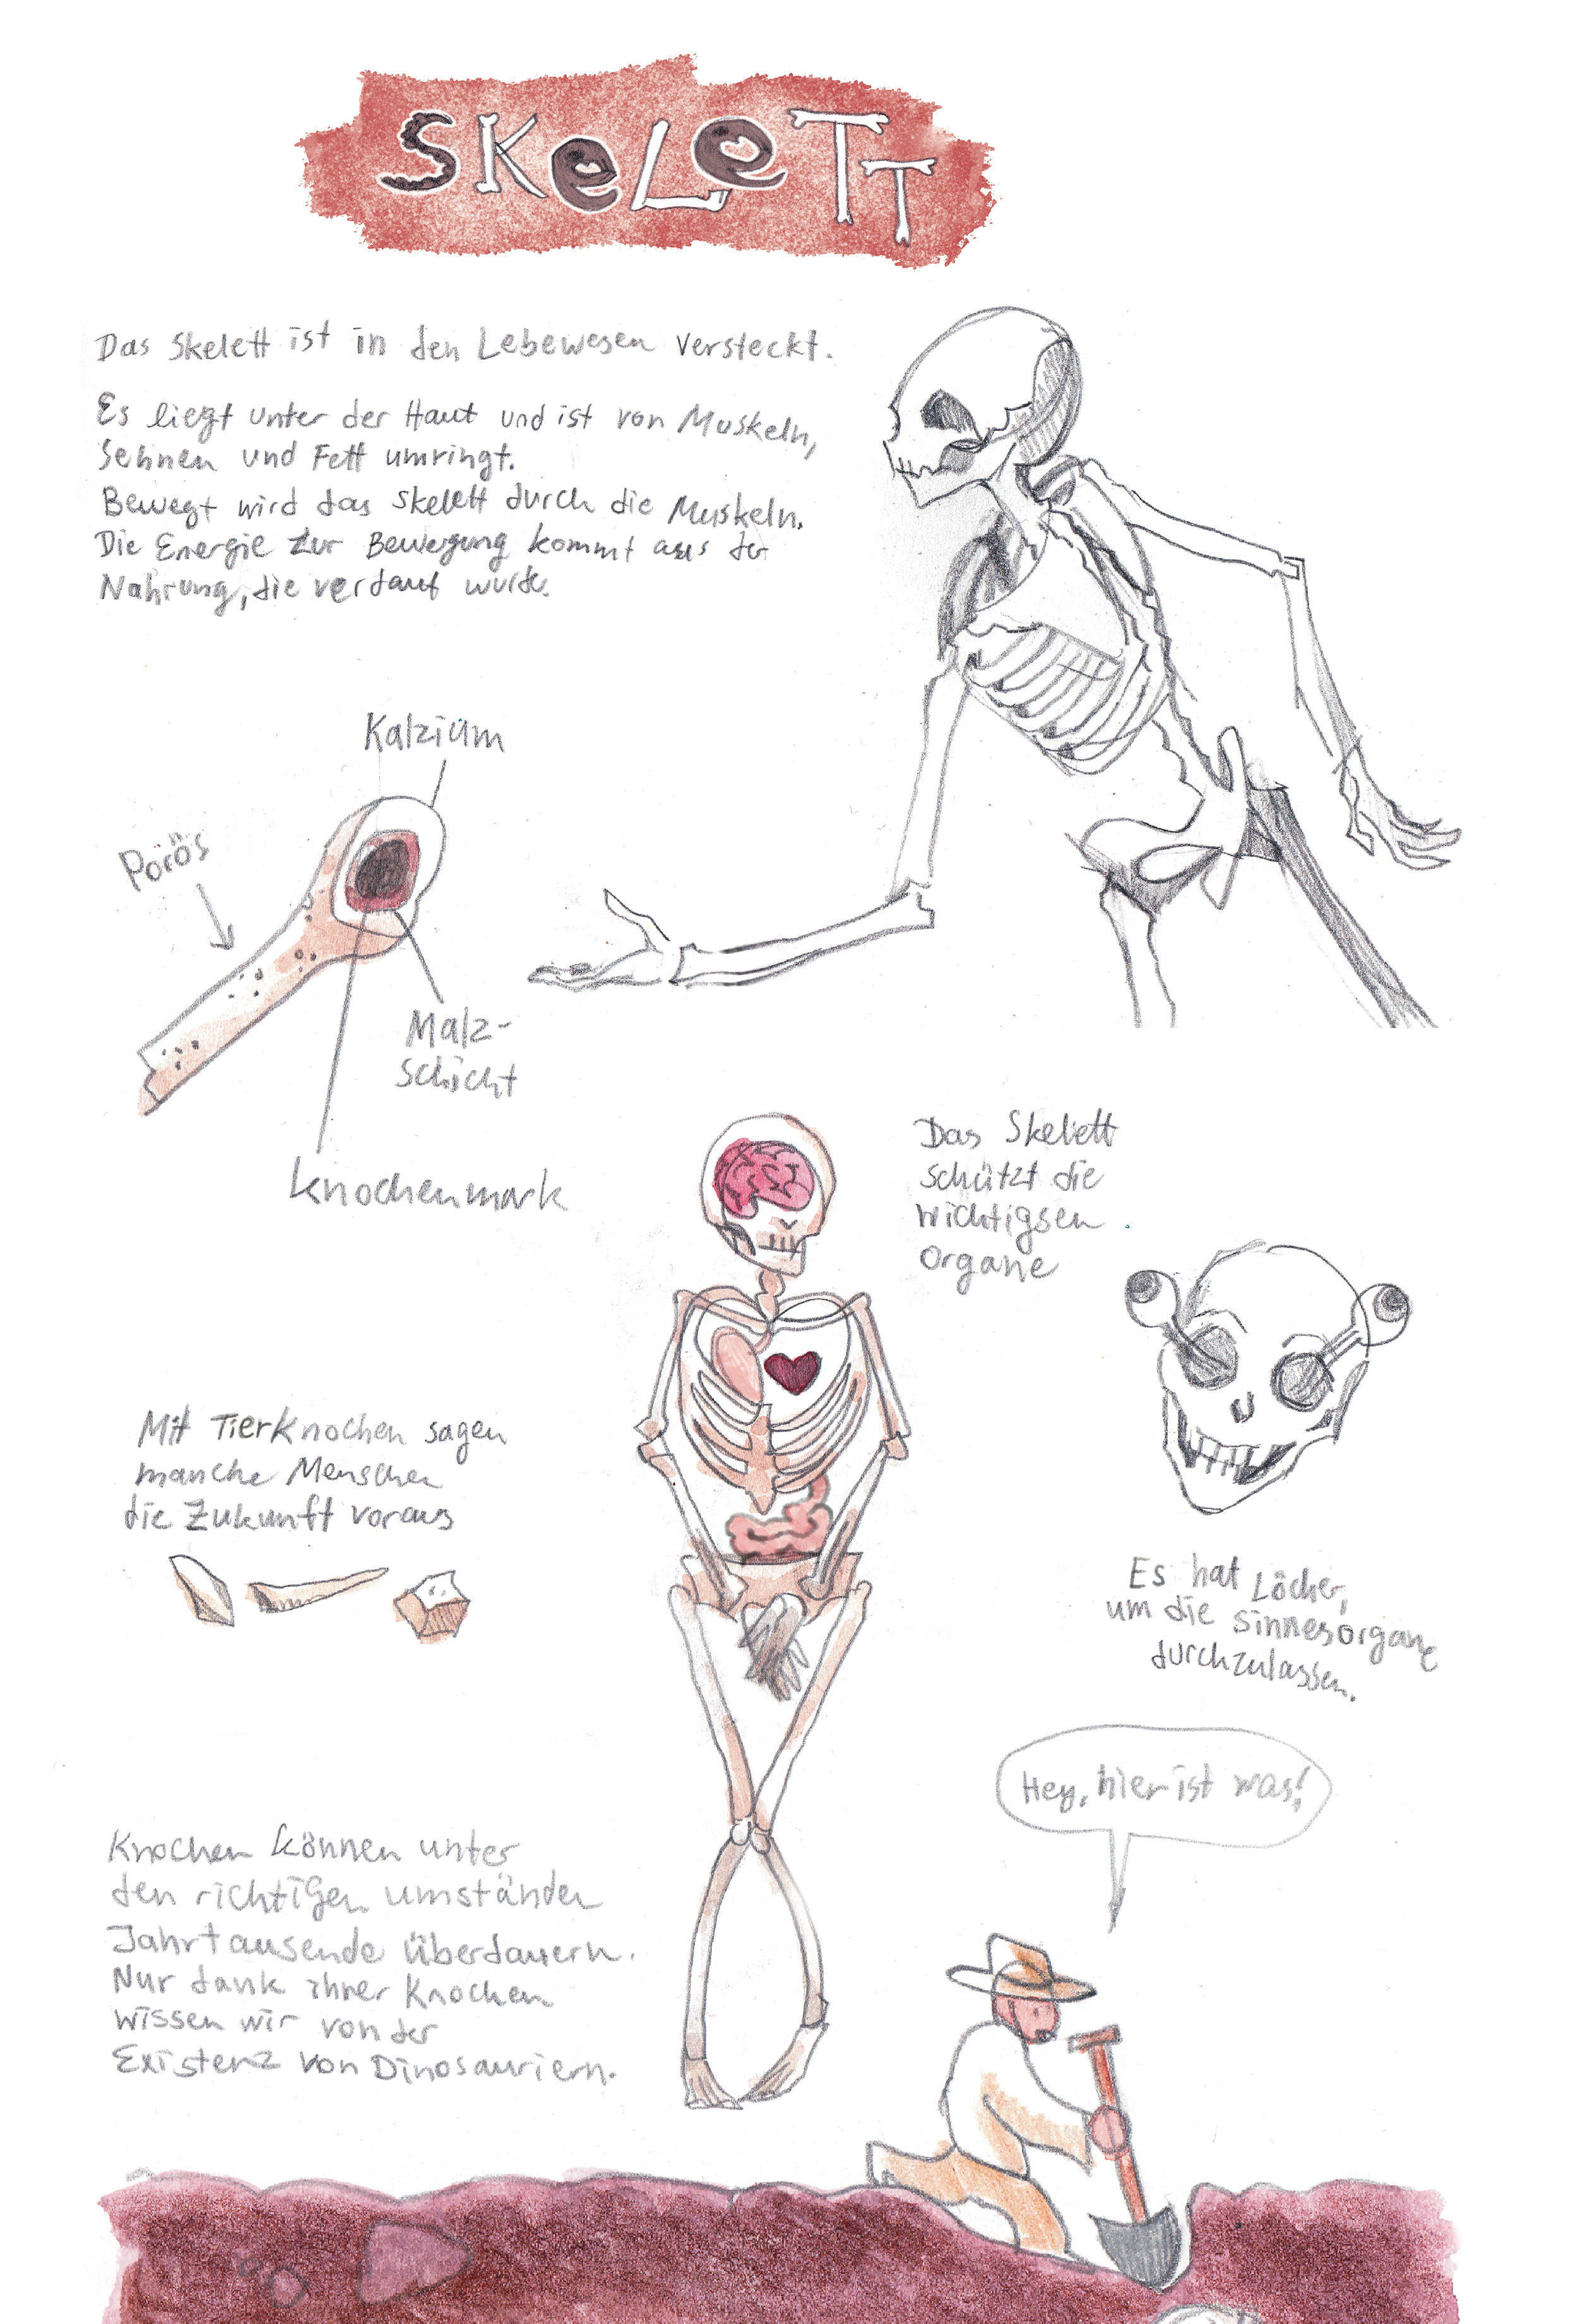 SKeLeTT
Das Skelett ist in den Lebewesen versteckt.
Es liegt unter der Haut und ist von Muskeln,
Sehnen und Fett umringt.
Bewegt wird das Skelett durch die Muskeln.
Die Energie zur Bewegung kommt aus der
Nahrung, die verdaut wurde.
Kalzium
Porös
Malz-
schicht
Knochenmark
Das Skelett
schützt die
wichtigsen
Organe
Mit Tierknochen sagen
manche Menschen
die Zukunft voraus
Es hat Löcher,
um die Sinnesorgane
durchzulassen.
Hey, hier ist was!
Knochen können unter
den richtigen umständen
Jahrtausende überdauern.
Nur dank ihrer Knochen
wissen wir von der
Existenz von Dinosauriern.